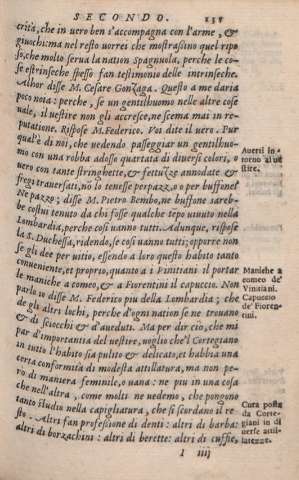 SECONDO. 135
crità, che in uero ben s'accompagna con l'arme, &
giuochi: ma nel resto uorrei che mostrassino quel ripo
so, che molto serua la nation Spagnuola, perche le co-
se estrinseche spesso fan testimonio delle intrinseche.
Alhor disse M. Cesare Gonzaga. Questo a me daria
poca noia: perche, se un gentilhuomo nelle altre cose
uale, il uestire non gli accresce, ne scema mai in re-
putatione. Rispose M. Federico. Voi dite il uero. Pur
qual'è di noi, che uedendo passeggiar un gentilhuo-
mo con una robba adosso quartata di diuersi colori, o
uero con tante stringhette, & fettuzze annodate &
fregi trauersati, nō lo tenesse per pazzo, o per buffone?
Ne pazzo; disse M. Pietro Bembo, ne buffone sareb-
be costui tenuto da chi fosse qualche tēpo uiuuto nella
Lombardia, perche così uanno tutti. Adunque, rispose
la S. Duchessa, ridendo, se così uanno tutti; opporre non
se gli dee per uitio, essendo a loro questo habito tanto
conueniente, et proprio, quanto a i Vinitiani il portar
le maniche a comeo, & a Fiorentini il capuccio. Non
parlo io disse M. Federico piu della Lombardia; che
de gli altri lochi, perche d'ogni nation se ne trouano
& di sciocchi & d'aueduti. Ma per dir ciò, che mi
par d'importantia del uestire, uoglio che'l Cortegiano
in tutto l'habito sia pulito & delicato, et habbia una
certa conformità di modesta attillatura, ma non pe-
rò di maniera feminile, o uana: ne piu in una cosa
che nell'altra, come molti ne uedemo, che pongono
tanto studio nella capigliatura, che si scordano il re-
sto. Altri fan professione di denti: altri di barba:
altri di borzachini: altri di berette: altri di cuffie,
I iiij
Auerti in-
torno al ue
stire.
Maniche a
comeo de'
Vinitiani.
Capuccio
de' Fioren-
tini.
Cura posta
da Corte-
giani in di
uerse attil-
latezze.